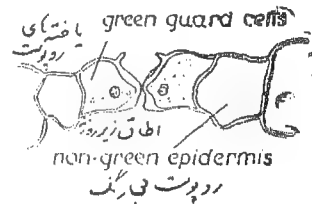 green guard cells
یاخته‌های
روپوست
اطاق زیر روزنه
non-green epidermis
روپوست بی رنگ